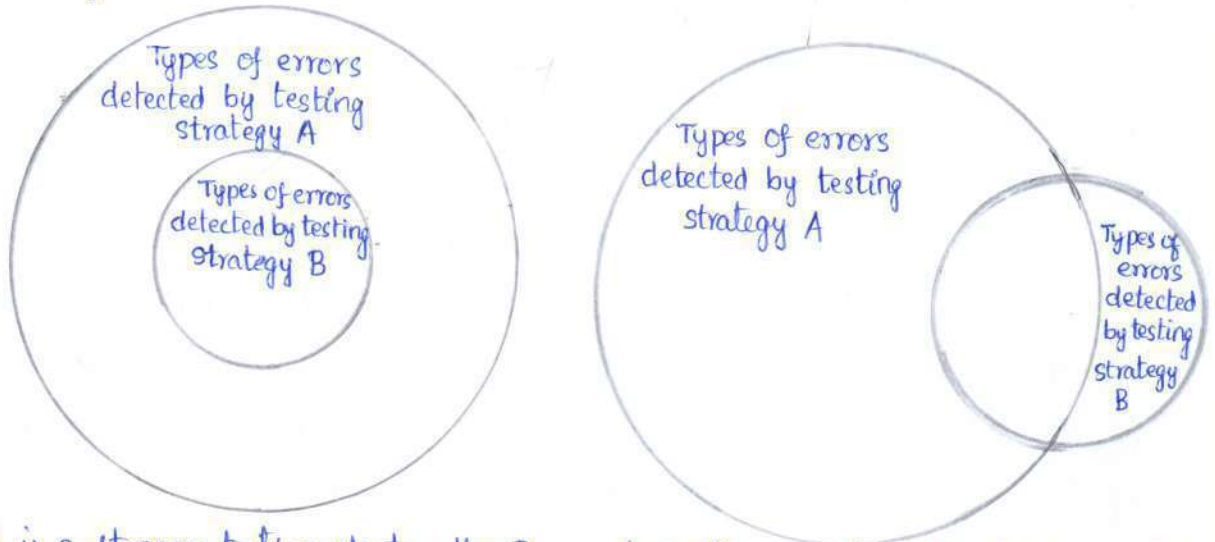 Types of errors
detected by testing
strategy A
Types of errors
detected by testing
strategy B
Types of errors
detected by testing
strategy A
Types of
errors
detected
by testing
strategy
B